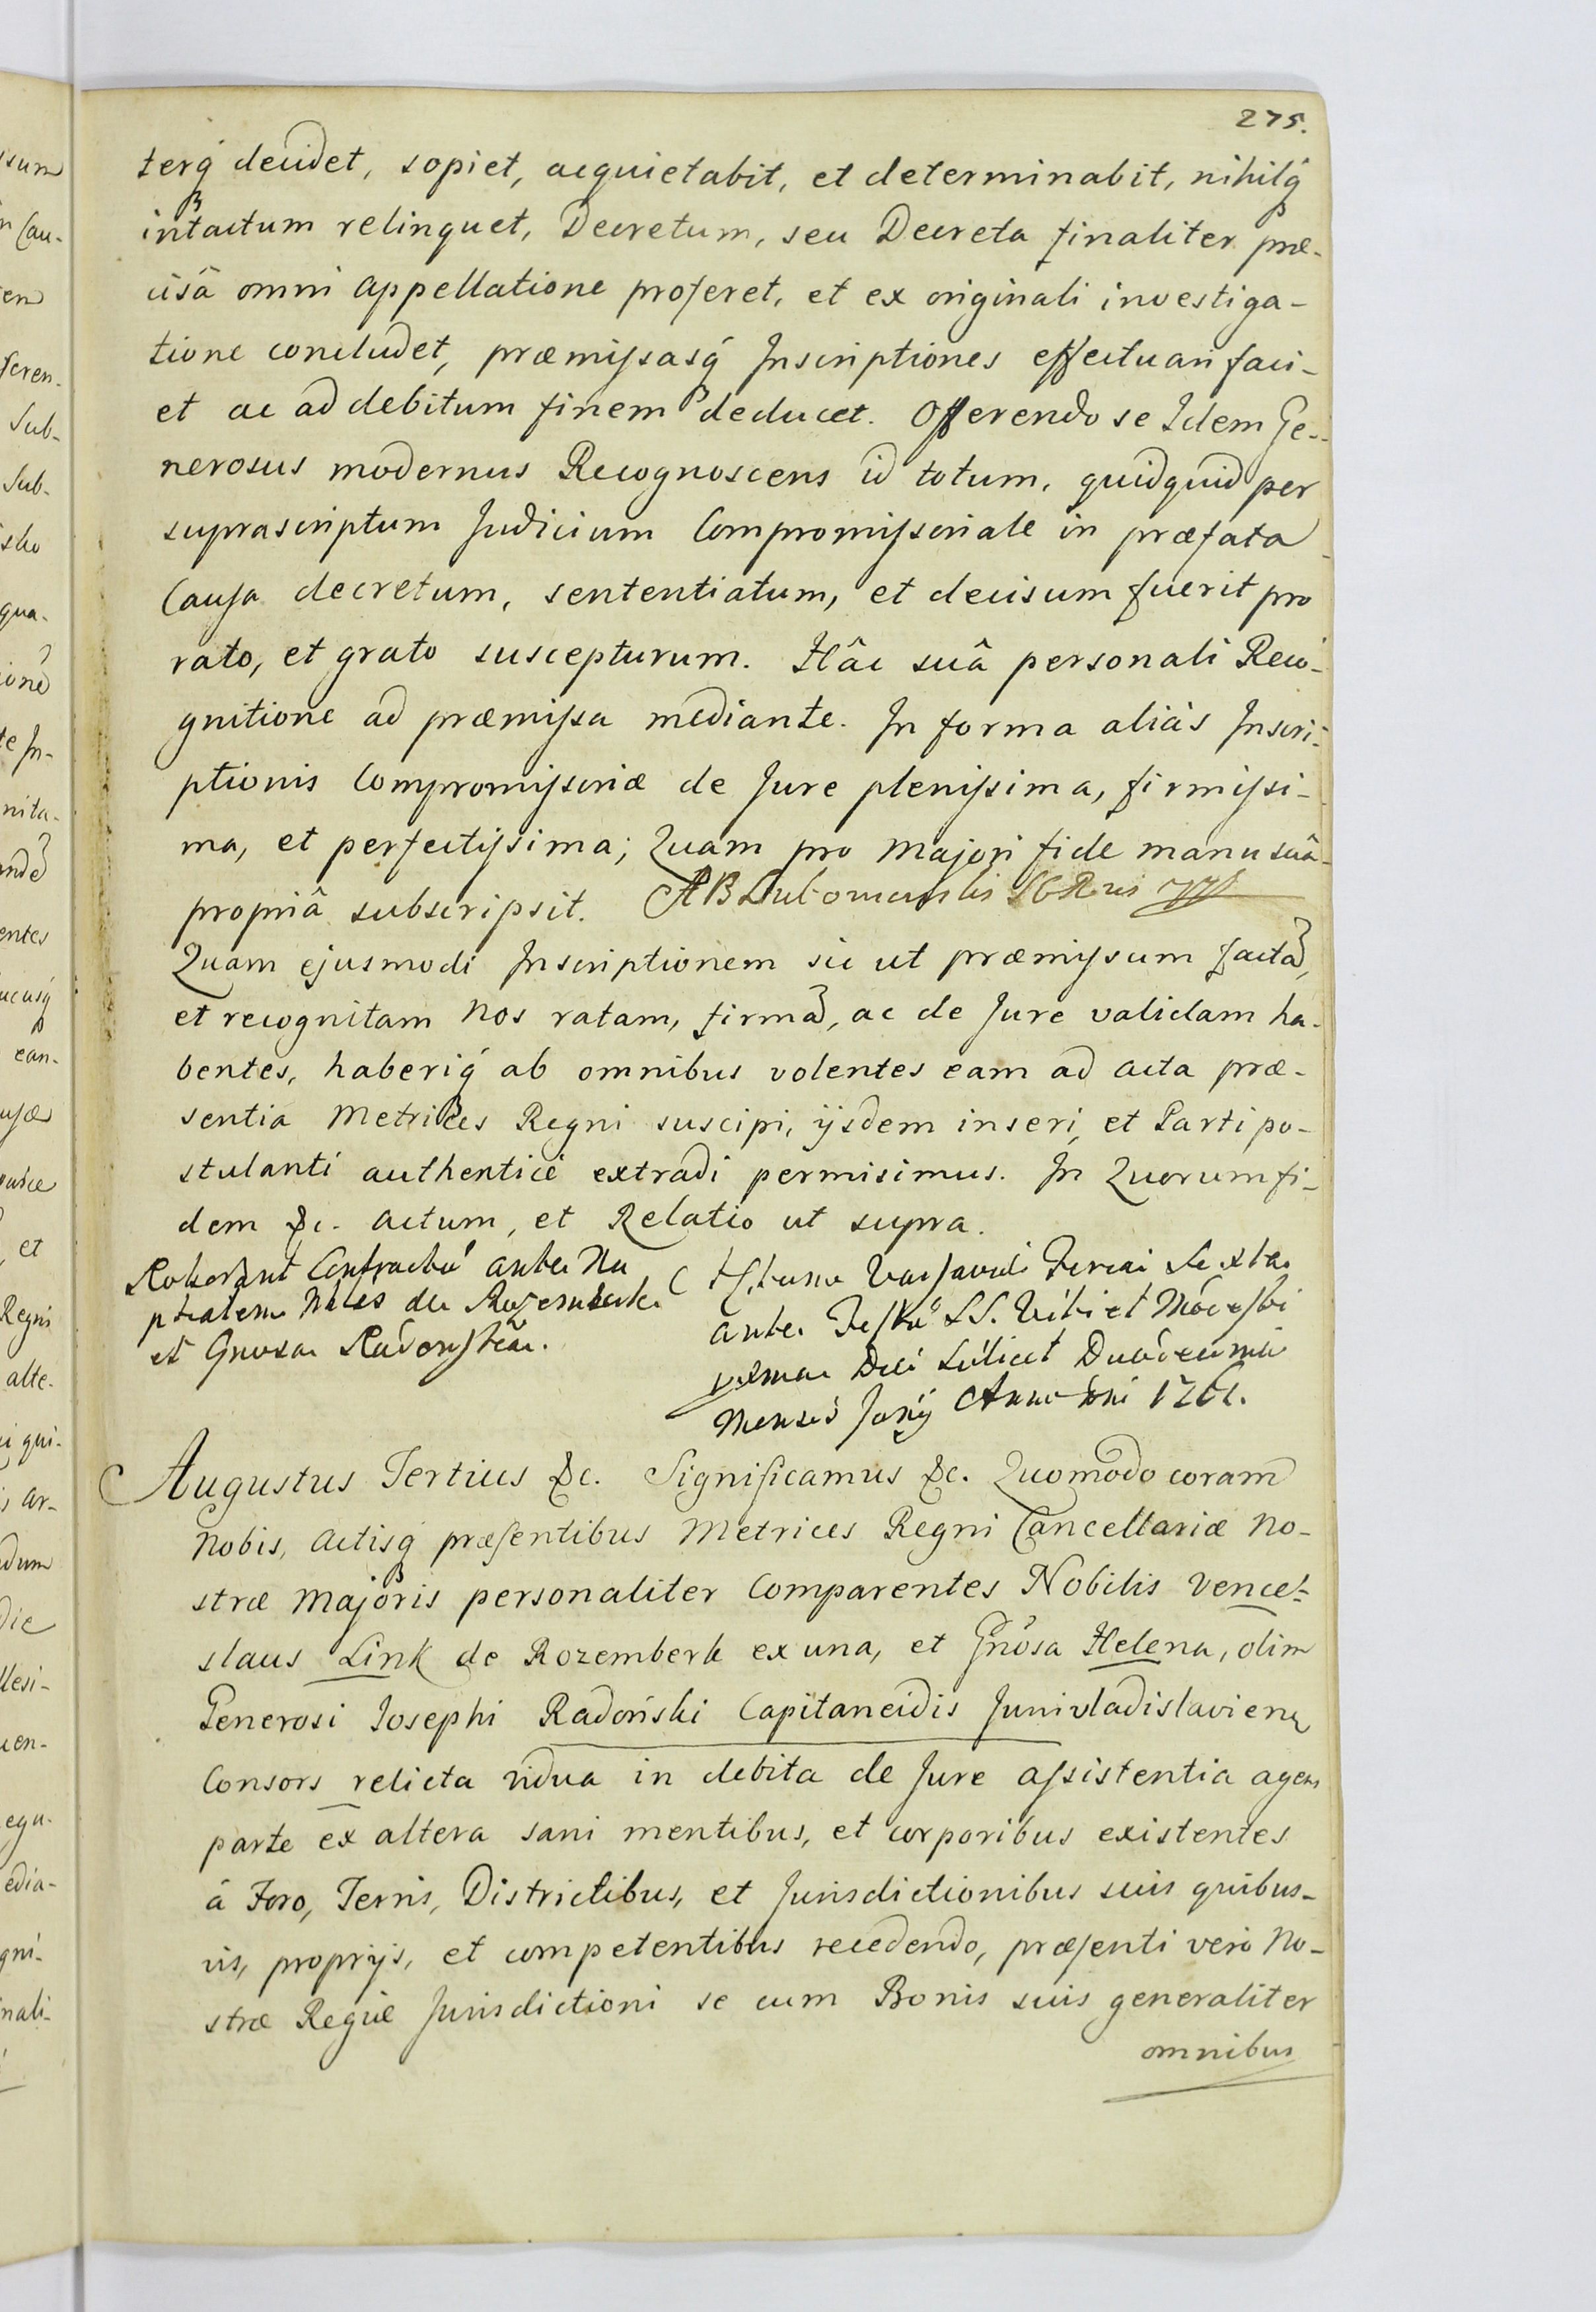 275.
terq́ decidet, sopiet, acquietabit, et determinabit, nihilq́
intactum relinquet, Decretum, seu Decreta finaliter præ-
cisâ omni appellatione proferet, et ex originali investiga-
tione concludet, præmissasq́ Inscriptiones effectuari faci-
et ac ad debitum finem deducet. Offerendo se Idem Ge-
nerosus modernus Recognoscens id totum, quidquid per
suprascriptum Judicium Compromissoriale in præfata
Causa decretum, sententiatum, et decisum fuerit pro
rato, et grato suscepturum. Hâc suâ personali Reco-
gnitione ad præmissa mediante. In forma aliàs Inscri-
ptionis Compromissoriæ de Jure plenissima, firmissi-
ma, et perfectissima; Quam pro majori fide manu suâ
propriâ subscripsit. AB
Quam ejusmodi Inscriptionem sic ut præmissum factã,
et recognitam Nos ratam, firmã, ac de Jure validam ha-
bentes, haberiq́ ab omnibus volentes eam ad acta præ-
sentia Metrices Regni suscipi, ijsdem inseri, et Parti po-
stulanti authenticè extradi permisimus. In Quorum fi-
dem &c. Actum, et Relatio ut supra.
ante Nu
ptialem de Rozemberk
et Gnosa Radonska.
Actum Varsaviæ Feria Sexta
ante Festũ SS. Viti et Modesti
Die scilicet Duodecima
Mensis Junij Anno Dni
Augustus Tertius &c. Significamus &c. Quomodo coram
Nobis, Actisq́ præsentibus Metrices Regni Cancellariæ No-
stræ Majoris personaliter Comparentes Nobilis Vence-
slaus Link de Rozemberk ex una, et Gnosa Helena, olim
Generosi Josephi Radoński Capitaneidis Junivladislavien
Consors relicta vidua in debita de Jure assistentia agens
parte ex altera sani mentibus, et corporibus existentes
à Foro, Terris, Districtibus, et Jurisdictionibus suis quibus-
vis, proprijs, et competentibus recedendo, præsenti verò No-
stræ Regiæ Jurisdictioni se cum Bonis suis generaliter
omnibus